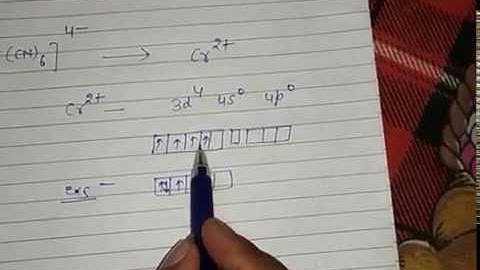 4-
(CN)6] ⟶ Cr2+
Cr2+ — 3d4 4s0 4p0
↑ ↑ ↑ ↑
Exc — ↑↓ ↑